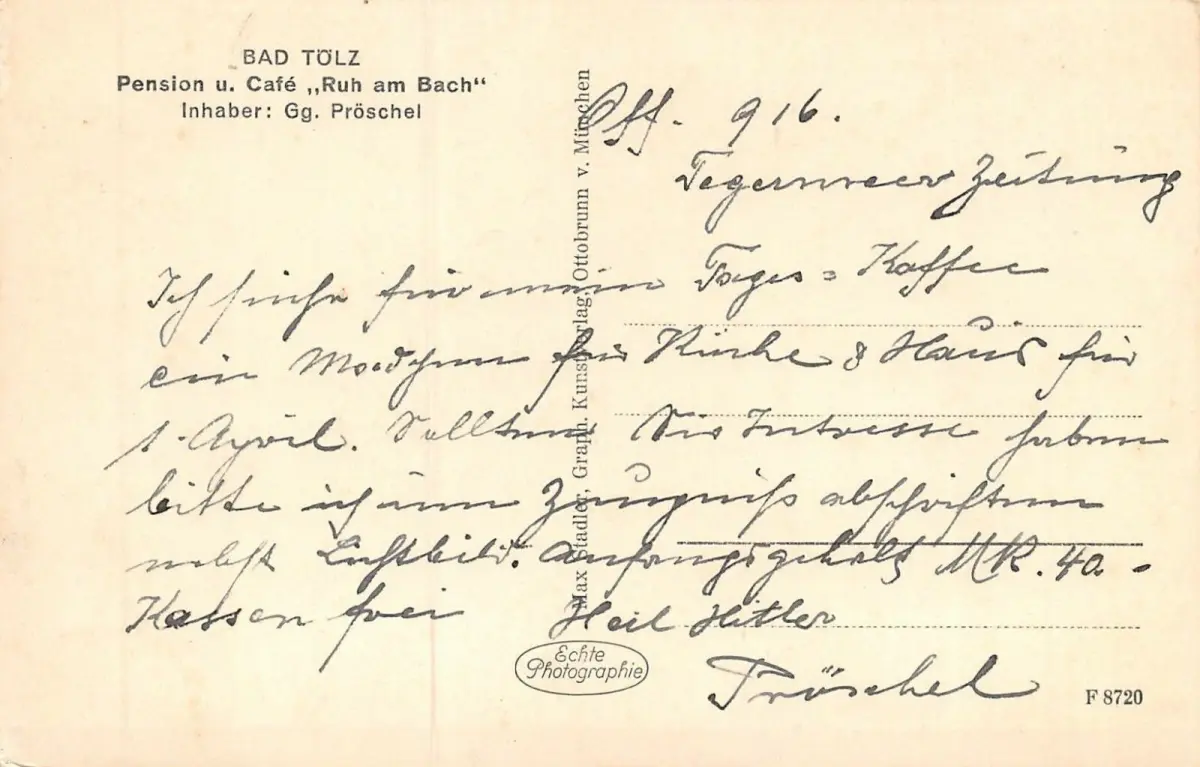 BAD TÖLZ
Pension u. Café „Ruh am Bach“
Inhaber: Gg. Pröschel
Max Stadler, Graph. Kunstverlag, Ottobrunn v. München
Off. 916.
Tegernseer Zeitung
Ich suche für mein Tages=Kaffee
ein Mädchen für Küche & Haus für
1. April. Sollten Sie Intresse haben
bitte ich um Zeugniß abschriften
nebst Lichtbild. Anfangsgehalt MK. 40.-
Kassen frei Heil Hitler
Pröschel
Echte
Photographie
F 8720